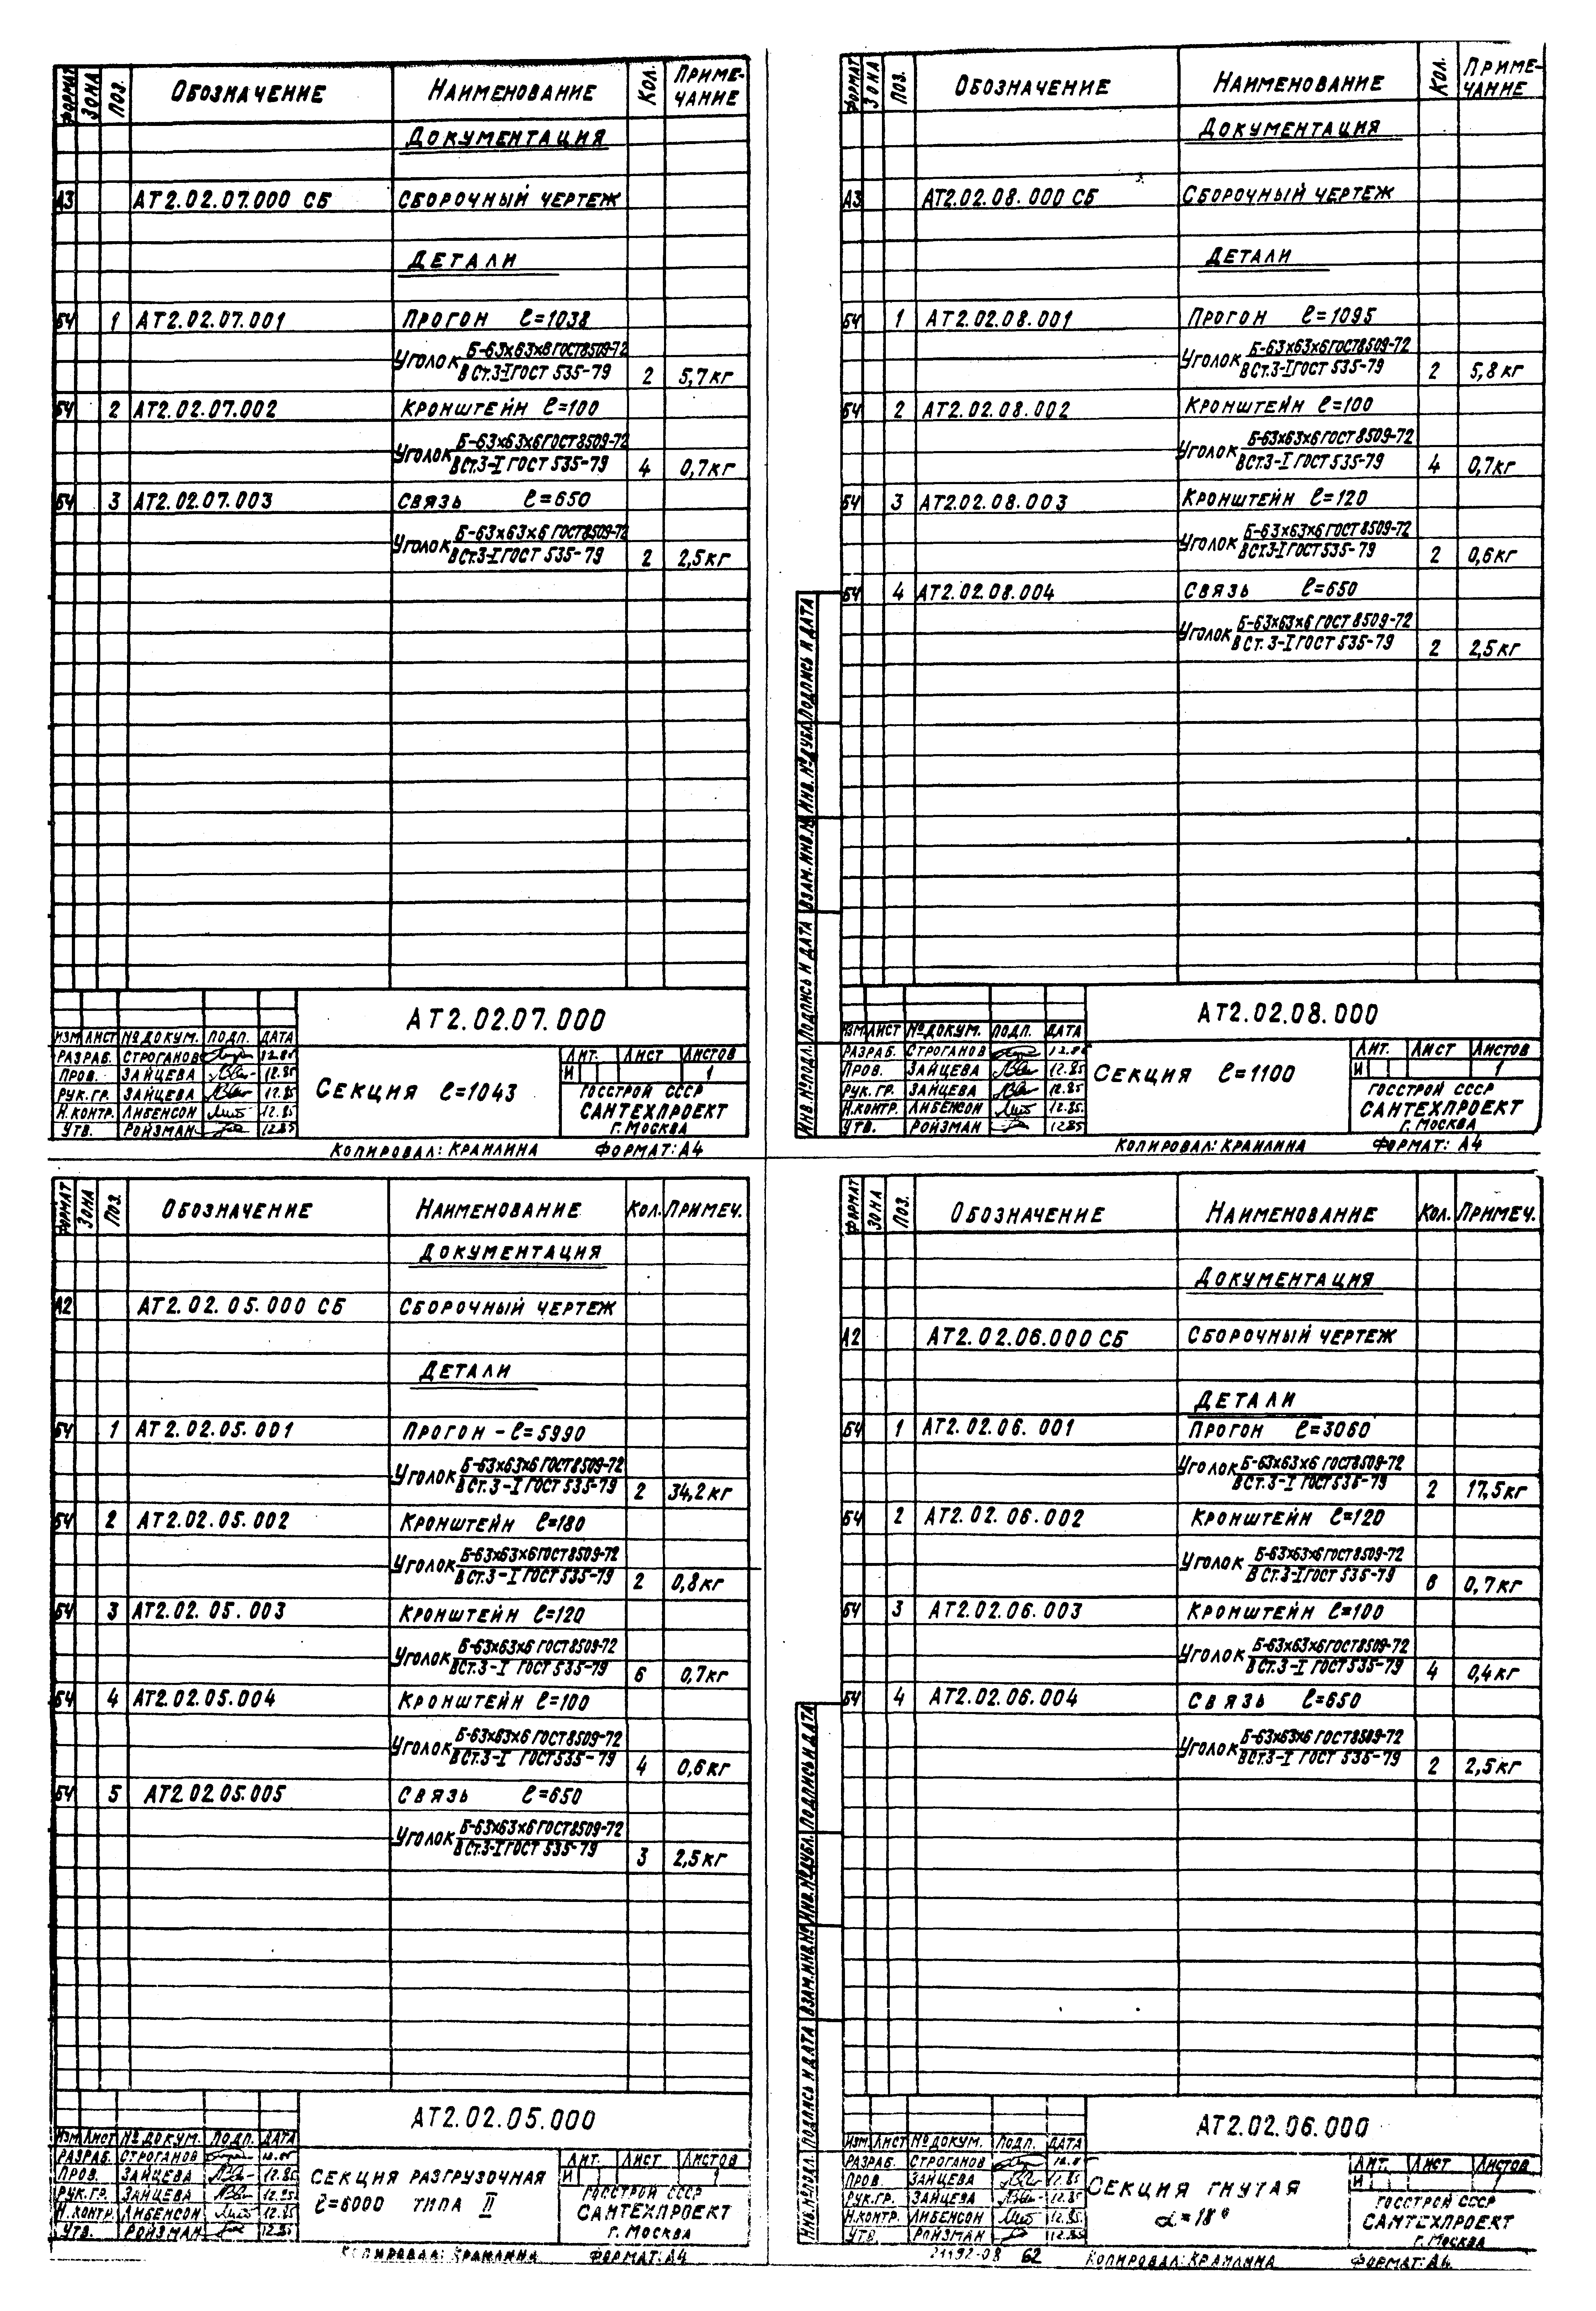 ФОРМАТ ЗОНА ПОЗ. ОБОЗНАЧЕНИЕ НАИМЕНОВАНИЕ КОЛ. ПРИМЕ-
ЧАНИЕ
ДОКУМЕНТАЦИЯ
А3 АТ2.02.07.000 СБ СБОРОЧНЫЙ ЧЕРТЕЖ
ДЕТАЛИ
БЧ 1 АТ2.02.07.001 ПРОГОН ℓ=1038
УГОЛОК Б-63х63х6 ГОСТ 8509-72
В СТ.3-I ГОСТ 535-79 2 5,7кг
БЧ 2 АТ2.02.07.002 КРОНШТЕЙН ℓ=100
УГОЛОК Б-63х63х6 ГОСТ 8509-72
ВСТ.3-I ГОСТ 535-79 4 0,7кг
БЧ 3 АТ2.02.07.003 СВЯЗЬ ℓ=650
УГОЛОК Б-63х63х6 ГОСТ 8509-72
В СТ.3-I ГОСТ 535-79 2 2,5кг
АТ2.02.07.000
ИЗМ ЛИСТ № ДОКУМ. ПОДП. ДАТА
РАЗРАБ. СТРОГАНОВ 12.85
ПРОВ. ЗАЙЦЕВА 12.85
РУК.ГР. ЗАЙЦЕВА 12.85
Н.КОНТР. ЛИБЕНСОН 12.85
УТВ. РОЙЗМАН 12.85
СЕКЦИЯ ℓ=1043
ЛИТ. ЛИСТ ЛИСТОВ
И 1
ГОССТРОЙ СССР
САНТЕХПРОЕКТ
Г. МОСКВА
КОПИРОВАЛ: КРАИЛИНА ФОРМАТ: А4
ФОРМАТ ЗОНА ПОЗ. ОБОЗНАЧЕНИЕ НАИМЕНОВАНИЕ КОЛ. ПРИМЕ-
ЧАНИЕ
ДОКУМЕНТАЦИЯ
А3 АТ2.02.08.000 СБ СБОРОЧНЫЙ ЧЕРТЕЖ
ДЕТАЛИ
БЧ 1 АТ2.02.08.001 ПРОГОН ℓ=1095
УГОЛОК Б-63х63х6 ГОСТ 8509-72
В СТ.3-I ГОСТ 535-79 2 5,8кг
БЧ 2 АТ2.02.08.002 КРОНШТЕЙН ℓ=100
УГОЛОК Б-63х63х6 ГОСТ 8509-72
ВСТ.3-I ГОСТ 535-79 4 0,7кг
БЧ 3 АТ2.02.08.003 КРОНШТЕЙН ℓ=120
УГОЛОК Б-63х63х6 ГОСТ 8509-72
ВСТ.3-I ГОСТ 535-79 2 0,6кг
БЧ 4 АТ2.02.08.004 СВЯЗЬ ℓ=650
УГОЛОК Б-63х63х6 ГОСТ 8509-72
В СТ. 3-I ГОСТ 535-79 2 2,5кг
ИНВ.№ПОДЛ. ПОДПИСЬ И ДАТА ВЗАМ.ИНВ.№ ИНВ.№ДУБЛ. ПОДПИСЬ И ДАТА
АТ2.02.08.000
ИЗМ ЛИСТ № ДОКУМ. ПОДП. ДАТА
РАЗРАБ. СТРОГАНОВ 12.85
ПРОВ. ЗАЙЦЕВА 12.85
РУК.ГР. ЗАЙЦЕВА 12.85
Н.КОНТР. ЛИБЕНСОН 12.85.
УТВ. РОЙЗМАН 12.85
СЕКЦИЯ ℓ=1100
ЛИТ. ЛИСТ ЛИСТОВ
И 1
ГОССТРОЙ СССР
САНТЕХПРОЕКТ
Г. МОСКВА
КОПИРОВАЛ: КРАИЛИНА ФОРМАТ: А4
ФОРМАТ ЗОНА ПОЗ. ОБОЗНАЧЕНИЕ НАИМЕНОВАНИЕ КОЛ. ПРИМЕЧ.
ДОКУМЕНТАЦИЯ
А2 АТ2.02.05.000 СБ СБОРОЧНЫЙ ЧЕРТЕЖ
ДЕТАЛИ
БЧ 1 АТ2.02.05.001 ПРОГОН - ℓ=5990
УГОЛОК Б-63х63х6 ГОСТ 8509-72
В СТ.3-I ГОСТ 535-79 2 34,2кг
БЧ 2 АТ2.02.05.002 КРОНШТЕЙН ℓ=180
УГОЛОК Б-63х63х6 ГОСТ 8509-72
В СТ.3-I ГОСТ 535-79 2 0,8кг
БЧ 3 АТ2.02.05.003 КРОНШТЕЙН ℓ=120
УГОЛОК Б-63х63х6 ГОСТ 8509-72
ВСТ.3-I ГОСТ 535-79 6 0,7кг
БЧ 4 АТ2.02.05.004 КРОНШТЕЙН ℓ=100
УГОЛОК Б-63х63х6 ГОСТ 8509-72
В СТ.3-I ГОСТ 535-79 4 0,6кг
БЧ 5 АТ2.02.05.005 СВЯЗЬ ℓ=650
УГОЛОК Б-63х63х6 ГОСТ 8509-72
В СТ.3-I ГОСТ 535-79 3 2,5кг
АТ2.02.05.000
ИЗМ ЛИСТ № ДОКУМ. ПОДП. ДАТА
РАЗРАБ. СТРОГАНОВ
ПРОВ. ЗАЙЦЕВА 12.85
РУК.ГР. ЗАЙЦЕВА 12.85
Н.КОНТР. ЛИБЕНСОН 12.85
УТВ. РОЙЗМАН 12.85
СЕКЦИЯ РАЗГРУЗОЧНАЯ
ℓ=6000 ТИПА II
ЛИТ. ЛИСТ ЛИСТОВ
И 1
ГОССТРОЙ СССР
САНТЕХПРОЕКТ
Г. МОСКВА
КОПИРОВАЛ: КРАИЛИНА ФОРМАТ: А4
ФОРМАТ ЗОНА ПОЗ. ОБОЗНАЧЕНИЕ НАИМЕНОВАНИЕ КОЛ. ПРИМЕЧ.
ДОКУМЕНТАЦИЯ
А2 АТ2.02.06.000 СБ СБОРОЧНЫЙ ЧЕРТЕЖ
ДЕТАЛИ
БЧ 1 АТ2.02.06.001 ПРОГОН ℓ=3060
УГОЛОК Б-63х63х6 ГОСТ 8509-72
В СТ.3-I ГОСТ 535-79 2 17,5кг
БЧ 2 АТ2.02.06.002 КРОНШТЕЙН ℓ=120
УГОЛОК Б-63х63х6 ГОСТ 8509-72
В СТ.3-I ГОСТ 535-79 6 0,7кг
БЧ 3 АТ2.02.06.003 КРОНШТЕЙН ℓ=100
УГОЛОК Б-63х63х6 ГОСТ 8509-72
ВСТ.3-I ГОСТ 535-79 4 0,4кг
БЧ 4 АТ2.02.06.004 СВЯЗЬ ℓ=650
УГОЛОК Б-63х63х6 ГОСТ 8509-72
ВСТ.3-I ГОСТ 535-79 2 2,5кг
ИНВ.№ПОДЛ. ПОДПИСЬ И ДАТА ВЗАМ.ИНВ.№ ИНВ.№ДУБЛ. ПОДПИСЬ И ДАТА
АТ2.02.06.000
ИЗМ ЛИСТ № ДОКУМ. ПОДП. ДАТА
РАЗРАБ. СТРОГАНОВ
ПРОВ ЗАЙЦЕВА 12.85
РУК.ГР. ЗАЙЦЕВА 12.85
Н.КОНТР. ЛИБЕНСОН 12.85.
УТВ. РОЙЗМАН 12.85.
СЕКЦИЯ ГНУТАЯ
α=18°
ЛИТ. ЛИСТ ЛИСТОВ
И 1
ГОССТРОЙ СССР
САНТЕХПРОЕКТ
Г. МОСКВА
21192-08 62 КОПИРОВАЛ: КРАИЛИНА ФОРМАТ: А4